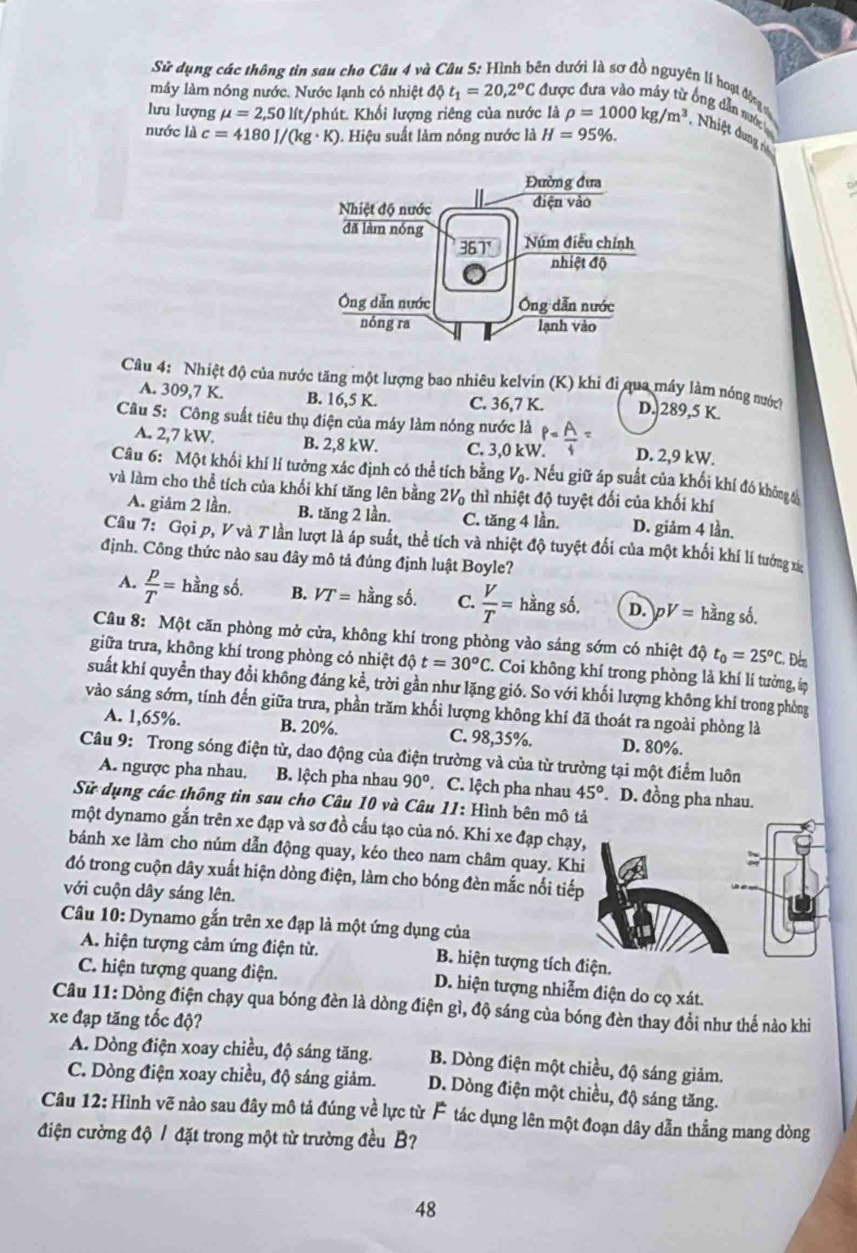 Sử dụng các thông tin sau cho Câu 4 và Câu 5: Hình bên dưới là sơ đồ nguyên lí hoạt động
máy làm nóng nước. Nước lạnh có nhiệt độ t₁ = 20,2°C được đưa vào máy từ ống dẫn nước
lưu lượng μ = 2,50 lít/phút. Khối lượng riêng của nước là ρ = 1000 kg/m³. Nhiệt dung
nước là c = 4180 J/(kg · K). Hiệu suất làm nóng nước là H = 95%.
Đường đưa
điện vào
Nhiệt độ nước
đã làm nóng
36.7°
Núm điều chỉnh
nhiệt độ
Ống dẫn nước
nóng ra
Ống dẫn nước
lạnh vào
Câu 4: Nhiệt độ của nước tăng một lượng bao nhiêu kelvin (K) khi đi qua máy làm nóng nước?
A. 309,7 K. B. 16,5 K. C. 36,7 K. D. 289,5 K.
Câu 5: Công suất tiêu thụ điện của máy làm nóng nước là P = A/t =
A. 2,7 kW. B. 2,8 kW. C. 3,0 kW. D. 2,9 kW.
Câu 6: Một khối khí lí tưởng xác định có thể tích bằng V₀. Nếu giữ áp suất của khối khí đó không
và làm cho thể tích của khối khí tăng lên bằng 2V₀ thì nhiệt độ tuyệt đối của khối khí
A. giảm 2 lần. B. tăng 2 lần. C. tăng 4 lần. D. giảm 4 lần.
Câu 7: Gọi p, V và T lần lượt là áp suất, thể tích và nhiệt độ tuyệt đối của một khối khí lí tưởng xác
định. Công thức nào sau đây mô tả đúng định luật Boyle?
A. p/T = hằng số. B. VT = hằng số. C. V/T = hằng số. D. pV = hằng số.
Câu 8: Một căn phòng mở cửa, không khí trong phòng vào sáng sớm có nhiệt độ t₀ = 25°C. Đến
giữa trưa, không khí trong phòng có nhiệt độ t = 30°C. Coi không khí trong phòng là khí lí tưởng, áp
suất khí quyển thay đổi không đáng kể, trời gần như lặng gió. So với khối lượng không khí trong phòng
vào sáng sớm, tính đến giữa trưa, phần trăm khối lượng không khí đã thoát ra ngoài phòng là
A. 1,65%. B. 20%. C. 98,35%. D. 80%.
Câu 9: Trong sóng điện từ, dao động của điện trường và của từ trường tại một điểm luôn
A. ngược pha nhau. B. lệch pha nhau 90°. C. lệch pha nhau 45°. D. đồng pha nhau.
Sử dụng các thông tin sau cho Câu 10 và Câu 11: Hình bên mô tả
một dynamo gắn trên xe đạp và sơ đồ cấu tạo của nó. Khi xe đạp chạy,
bánh xe làm cho núm dẫn động quay, kéo theo nam châm quay. Khi
đó trong cuộn dây xuất hiện dòng điện, làm cho bóng đèn mắc nối tiếp
với cuộn dây sáng lên.
Câu 10: Dynamo gắn trên xe đạp là một ứng dụng của
A. hiện tượng cảm ứng điện từ. B. hiện tượng tích điện.
C. hiện tượng quang điện. D. hiện tượng nhiễm điện do cọ xát.
Câu 11: Dòng điện chạy qua bóng đèn là dòng điện gì, độ sáng của bóng đèn thay đổi như thế nào khi
xe đạp tăng tốc độ?
A. Dòng điện xoay chiều, độ sáng tăng. B. Dòng điện một chiều, độ sáng giảm.
C. Dòng điện xoay chiều, độ sáng giảm. D. Dòng điện một chiều, độ sáng tăng.
Câu 12: Hình vẽ nào sau đây mô tả đúng về lực từ F⃗ tác dụng lên một đoạn dây dẫn thẳng mang dòng
điện cường độ I đặt trong một từ trường đều B⃗?
48